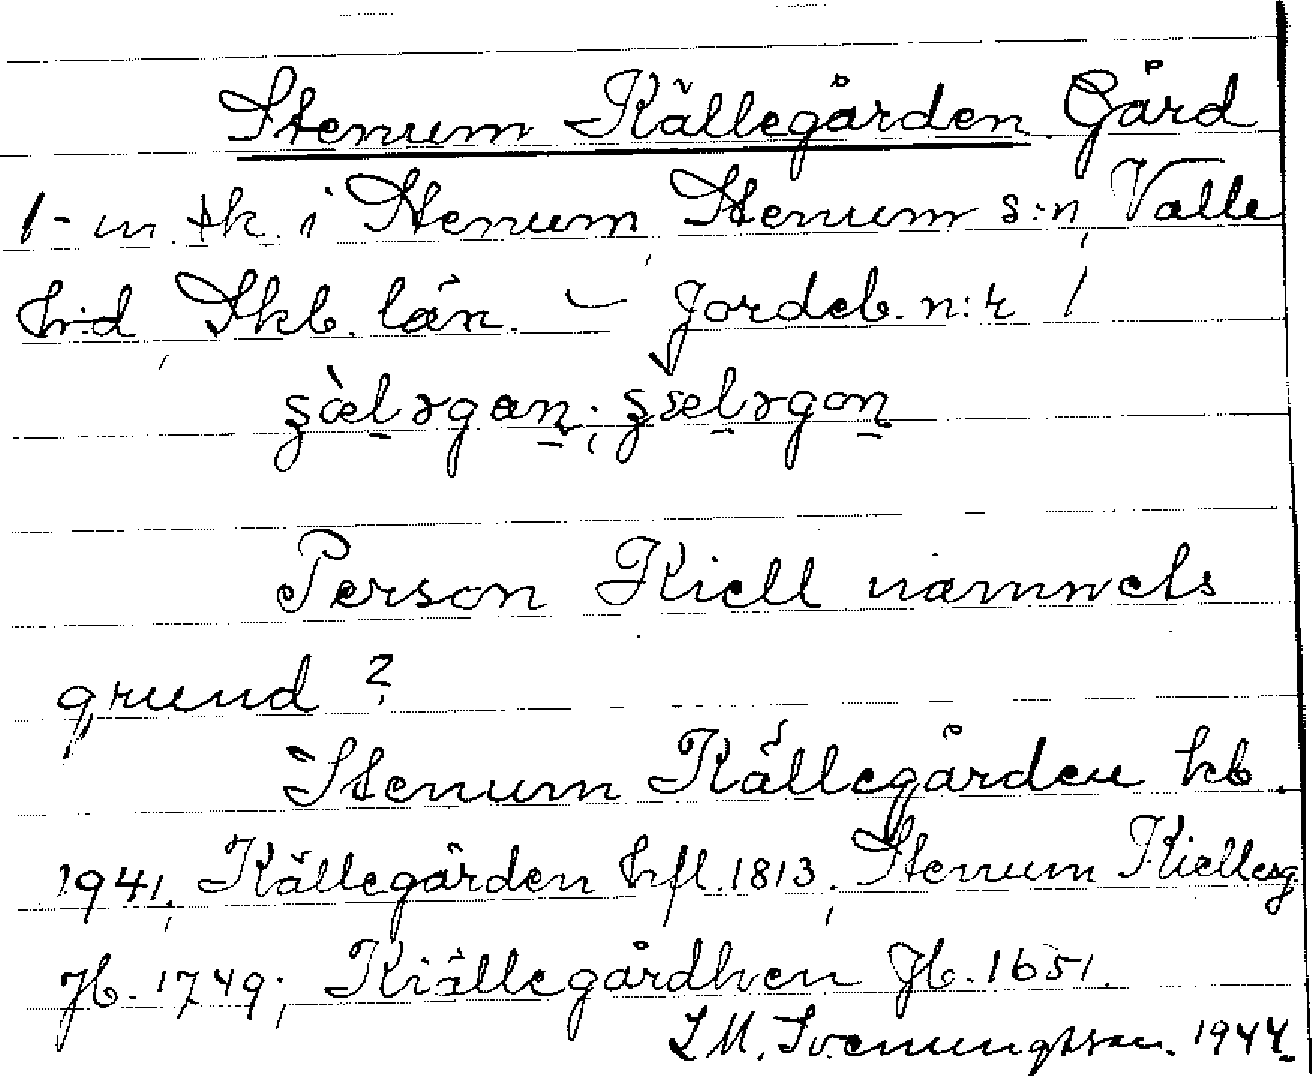 Stenum Källegården Gård
1 - m. tk. i Stenum, Stenum s:n, Valle
hd, Skb. län. – Jordeb. n:r 1
Person Kiell namnets
grund?
Stenum Källegården kb.
1941, Källegården hfl. 1813, Stenum Kiellesg.
Jb. 1749; Kiällegårdhen Jb. 1651.
1944.